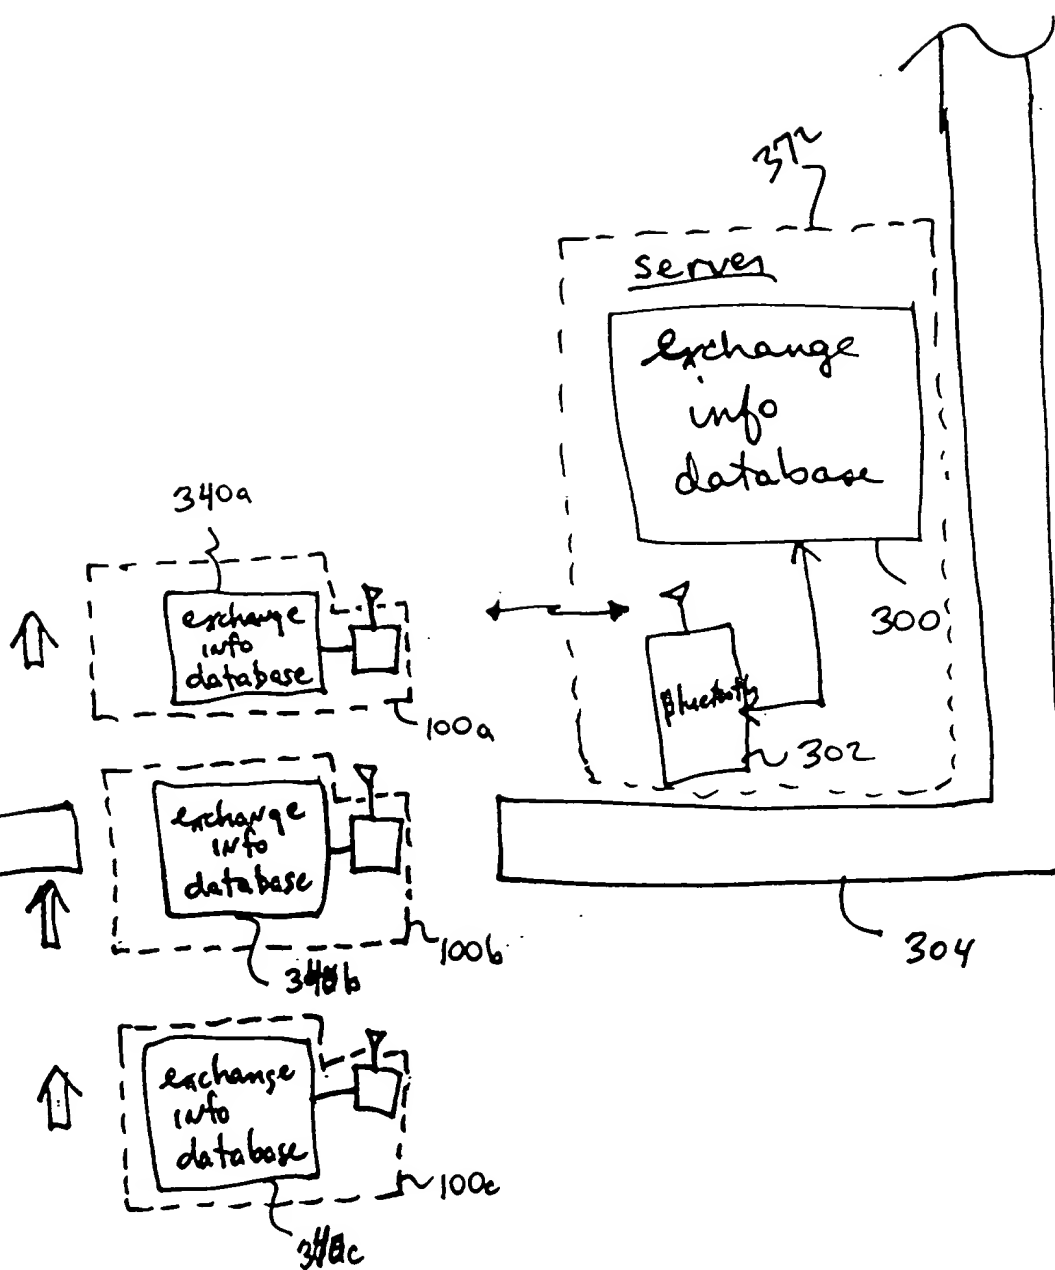 372
server
exchange
info
database
300
Bluetooth
302
304
340a
exchange
info
database
100a
exchange
info
database
100b
340b
exchange
info
database
100c
340c